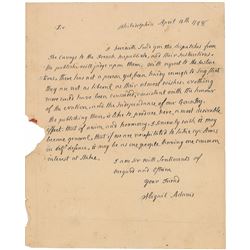 Sir Philadelphia April 13th 1798
I herewith send you the dispatches from
our Envoys to the French Republick, and their Instructions.
the publick will judge upon them, with regard to the Instruc
tions, there has not a person yet been hardy enough to say that
they are not as liberal as their utmost wishes, nothing
more could have been consistent with the honour
of the Nation, or the Independance of our Country.
the publishing them, is like to produce here, a most desirable
effect; that of union and harmony. I sincerely wish it may
become general, that if we are compelled to take up Arms
in self defence, it may be as one people having one common
interest at Stake.
I am Sir with Sentiments of
regard and Esteem
Your Friend
Abigail Adams